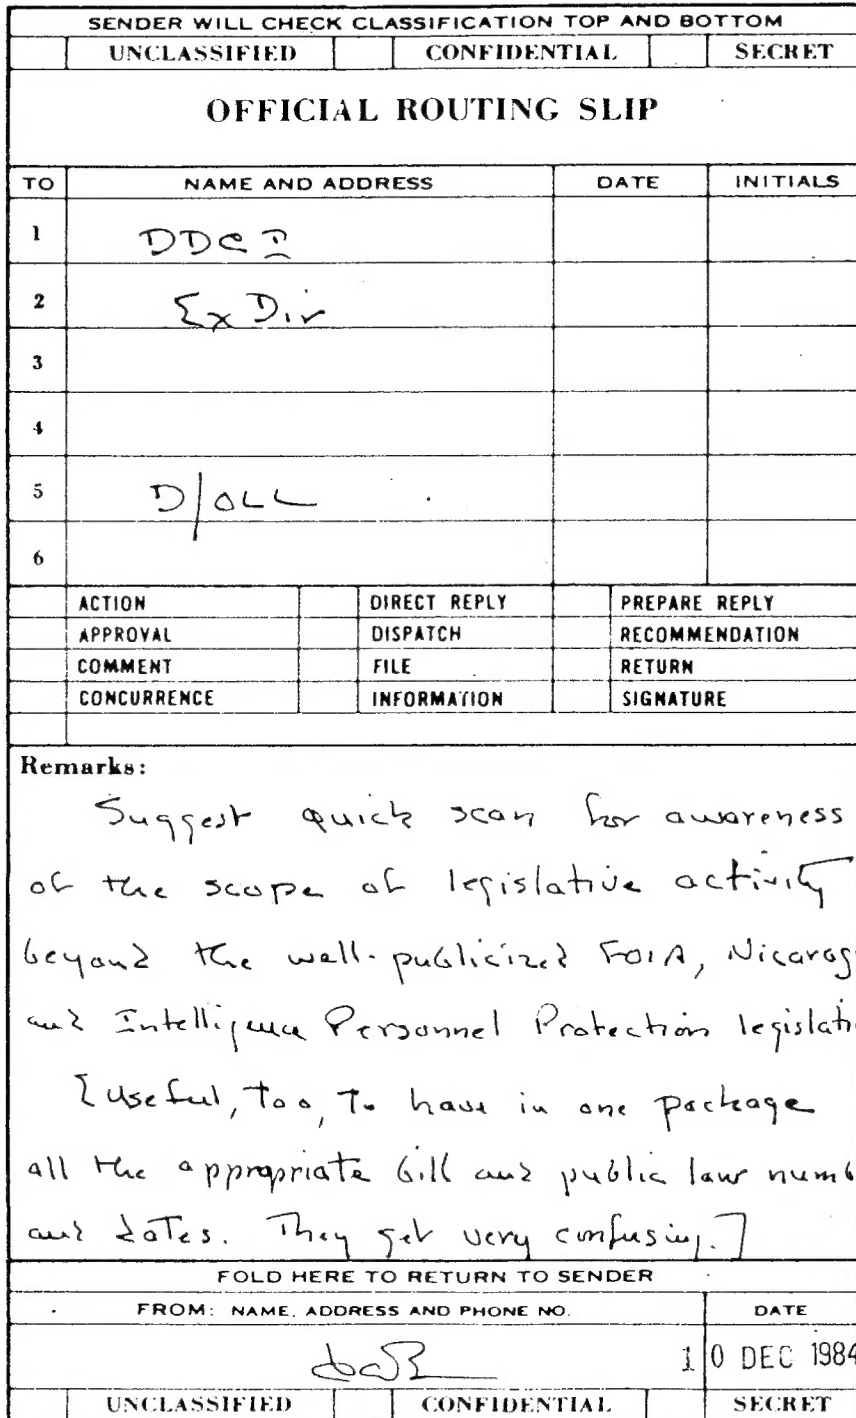 SENDER WILL CHECK CLASSIFICATION TOP AND BOTTOM
UNCLASSIFIED CONFIDENTIAL SECRET
OFFICIAL ROUTING SLIP
TO NAME AND ADDRESS DATE INITIALS
1 DDCI
2 ExDir
3
4
5 D/OLL
6
ACTION DIRECT REPLY PREPARE REPLY
APPROVAL DISPATCH RECOMMENDATION
COMMENT FILE RETURN
CONCURRENCE INFORMATION SIGNATURE
Remarks:
Suggest quick scan for awareness
of the scope of legislative activity
beyond the well-publicized FOIA, Nicarag
and Intelligence Personnel Protection legislati
[Useful, too, to have in one package
all the appropriate bill and public law numb
and dates. They get very confusing.]
FOLD HERE TO RETURN TO SENDER
FROM: NAME, ADDRESS AND PHONE NO. DATE
10 DEC 1984
UNCLASSIFIED CONFIDENTIAL SECRET